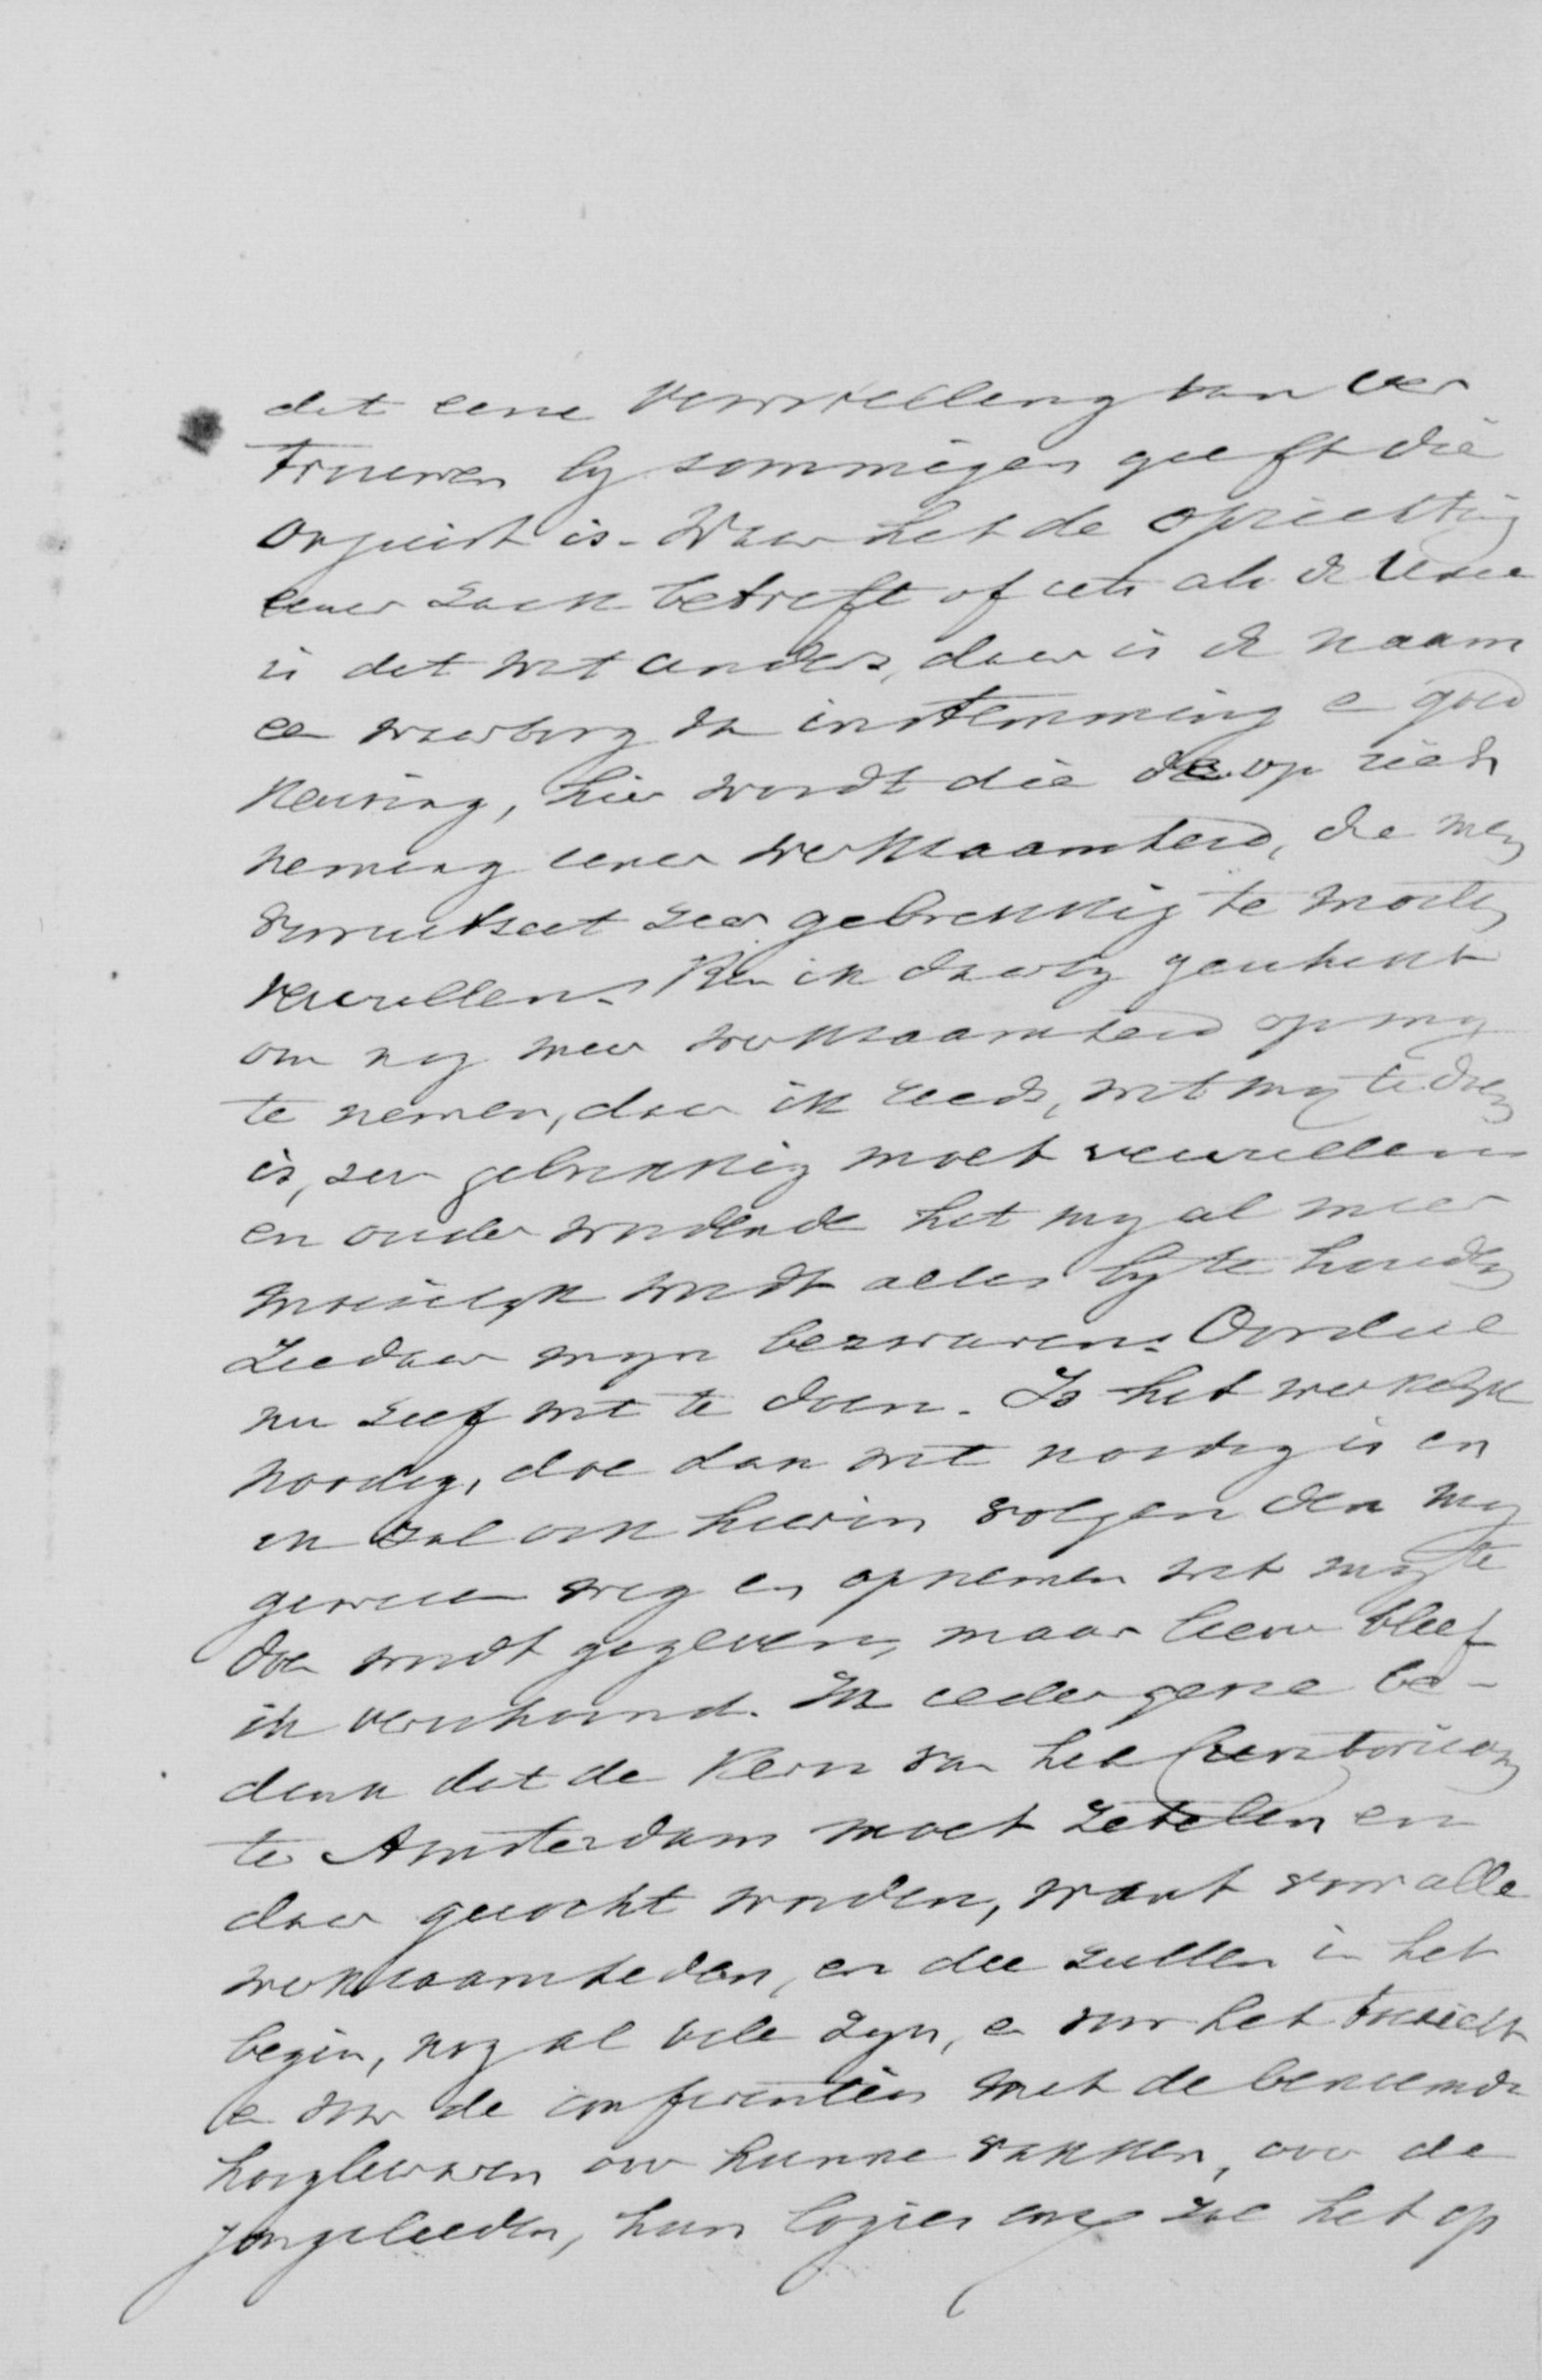 dat eene verwikkeling van ver
trouwen by sommigen geeft die
onjuist is. Waar het de oprichting
eener zaak betreft of iets als de Unie
is dat wat anders, daar is de naam
een waarborg van instemming en goed
keuring, hier wordt die de op zich
neming eener werkzaamheid, die men
vooruitziet zeer gebrekkig te moeten
vervullen. Ben ik daarby geschikt
om nog meer werkzaamheid op my
te nemen, daar ik reeds, wat my te doen
is, zeer gebrekkig moet vervullen
en ouder wordende het my al meer
moeielyk wordt alles by te houden
Ziedaar myn bezwaren. Oordeel
nu zelf wat te doen. Is het werkelyk
noodig, doe dan wat noodig is en
ik zal ook hierin volgen den my
gewezen weg en opnemen wat my te
doen wordt gegeven, maar liever bleef
ik verschoond. In ieder geval be-
denk dat de kern van het Curatorium
te Amsterdam moet zetelen en
daar gezocht worden, want voor alle
werkzaamheden, en die zullen in het
begin, nog al vele zyn, en voor het toezicht
en voor de conferentien met de benoemde
hoogleeraren over hunne vakken, over de
jongelieden, hun logies enz zal het op